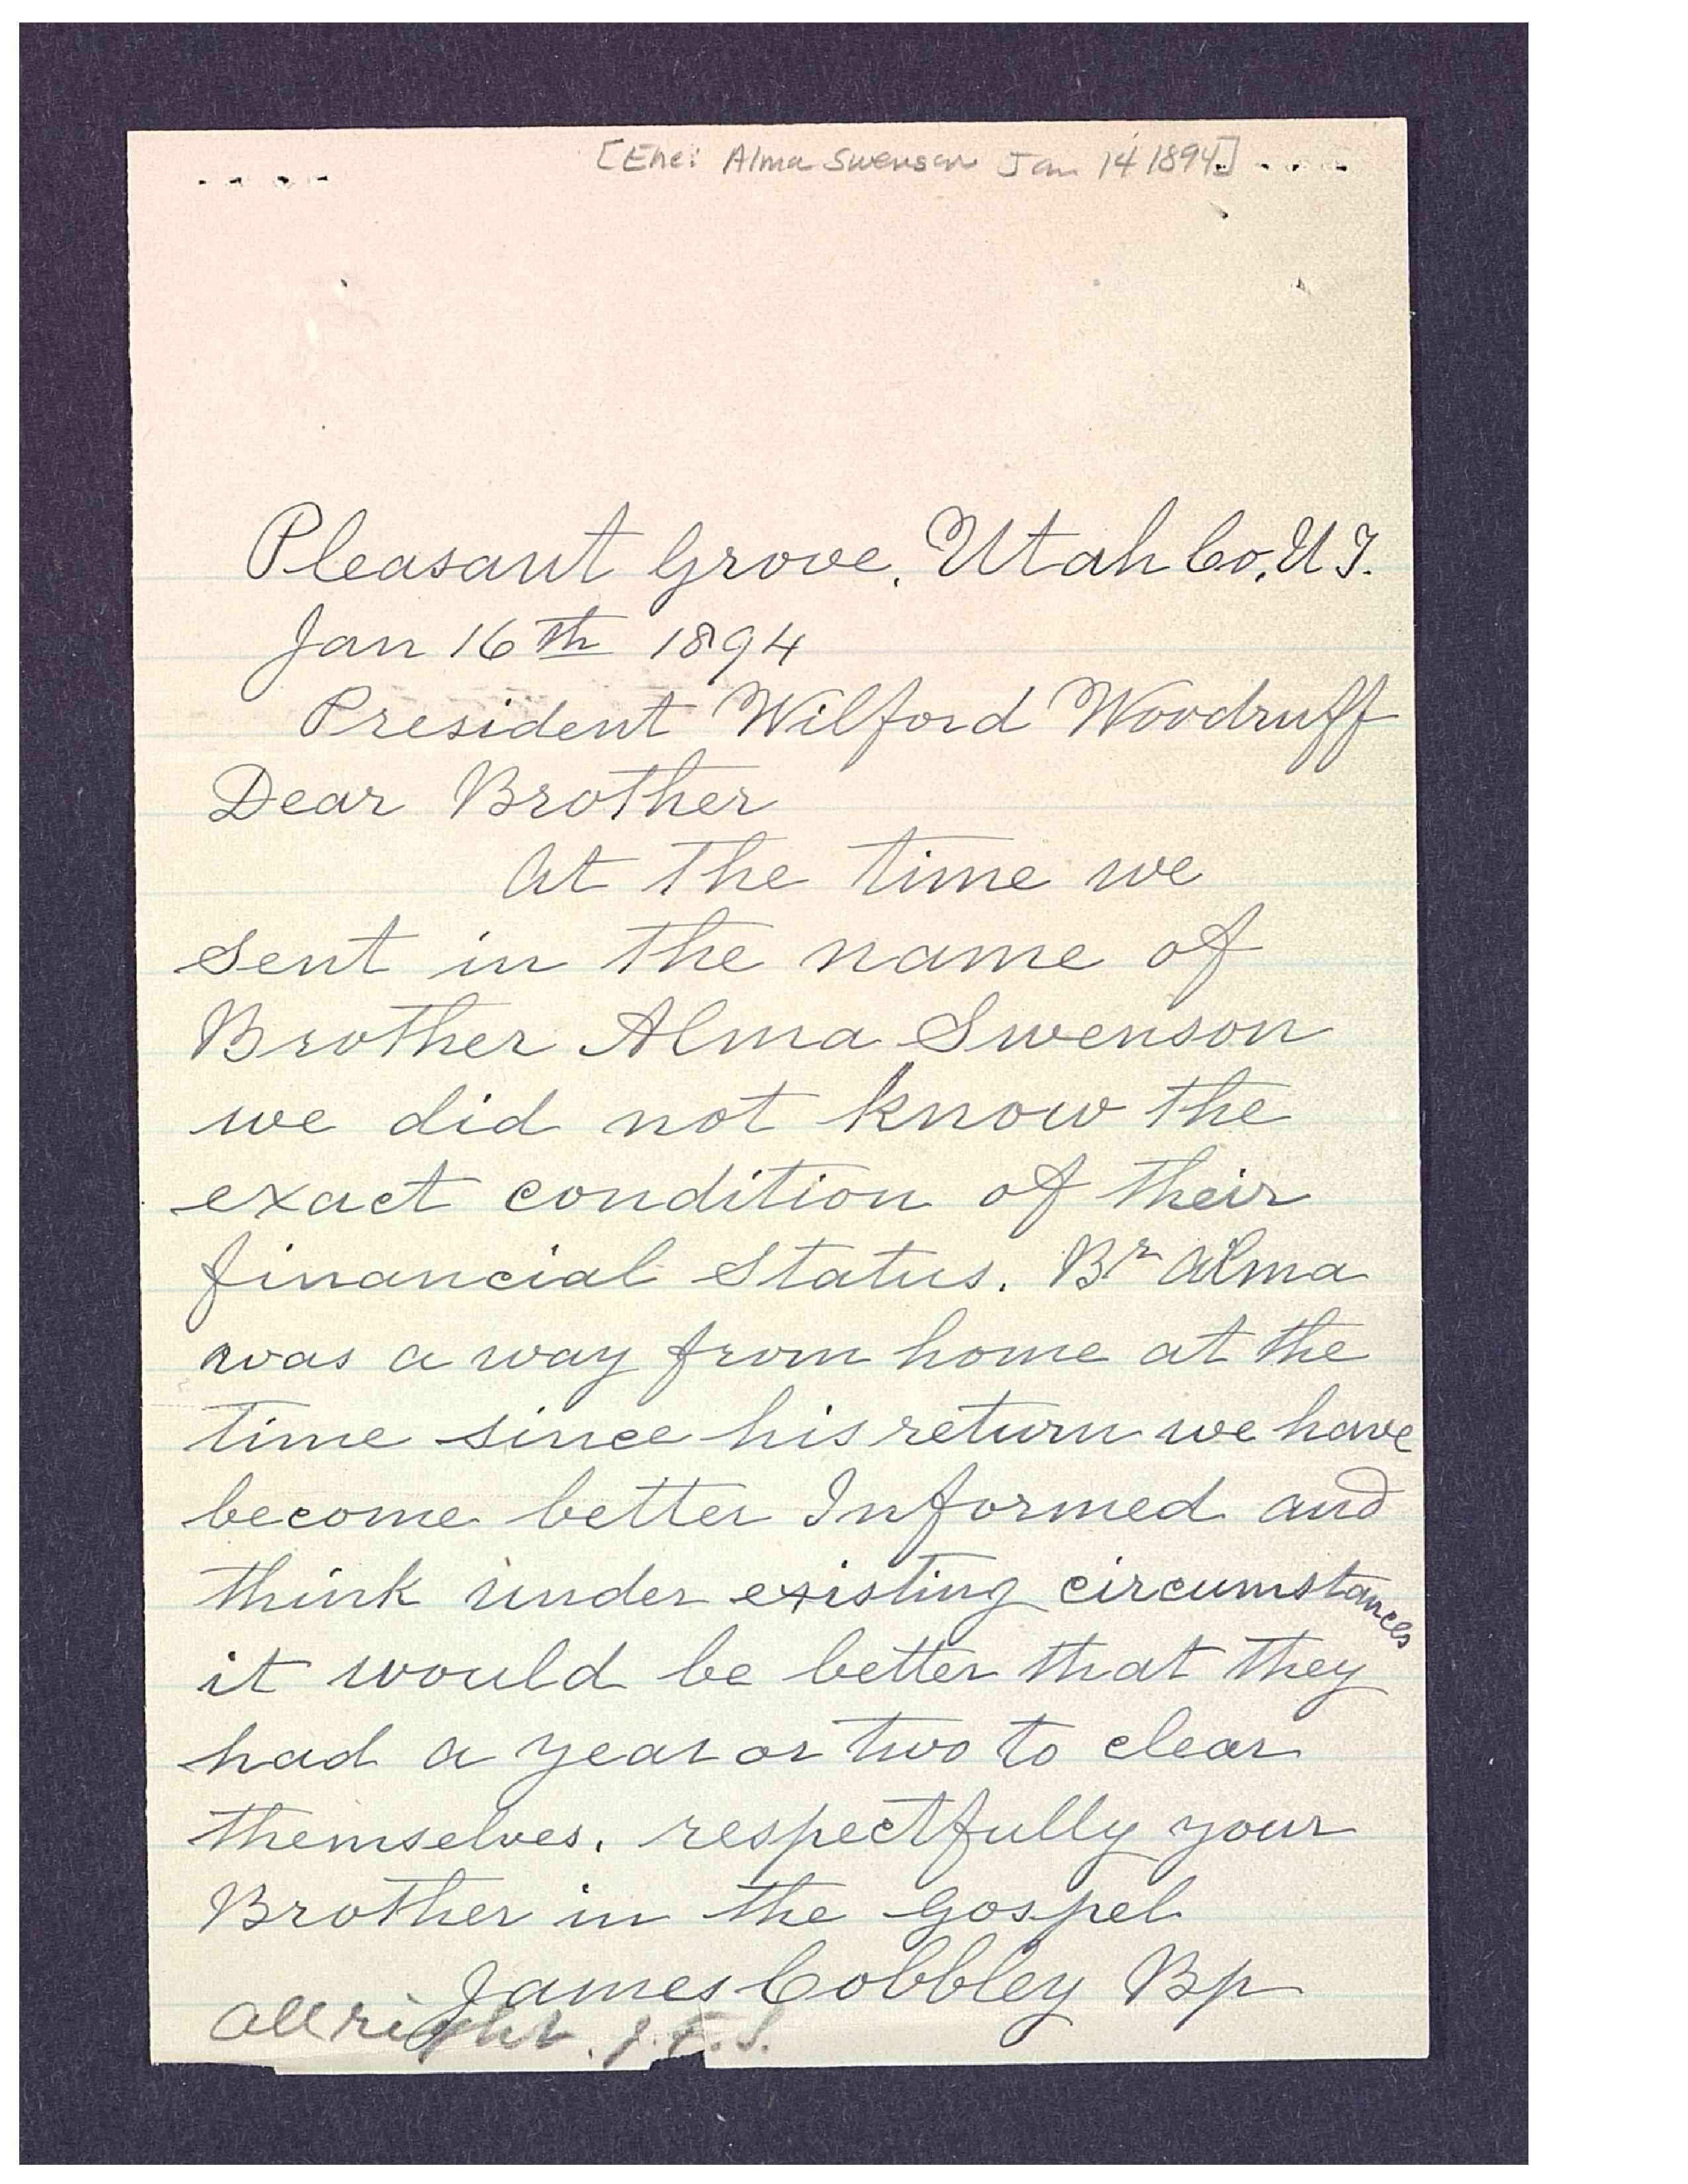 [Enc: Alma Swenson Jan 14 1894]
Pleasant Grove, Utah Co, U T.
Jan 16th 1894
President Wilford Woodruff
Dear Brother
At the time we
sent in the name of
Brother Alma Swenson
we did not know the
exact condition of their
financial Status. Br Alma
was a way from home at the
time since his return we have
become better Informed and
think under existing circumstances
it would be better that they
had a year or two to clear
themselves. respectfully your
Brother in the gospel
James Cobbley Bp
All right. J.F.S.